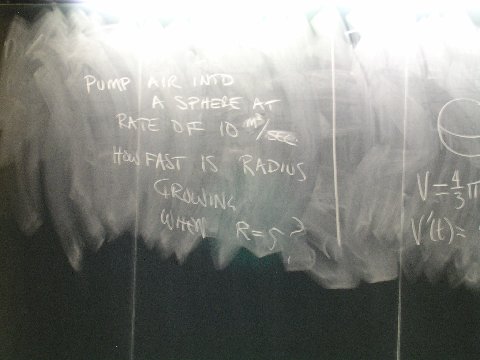 PUMP AIR INTO
A SPHERE AT
RATE OF 10 m³/SEC.
HOW FAST IS RADIUS
GROWING
WHEN R=5?
V=4/3π
V'(t)=